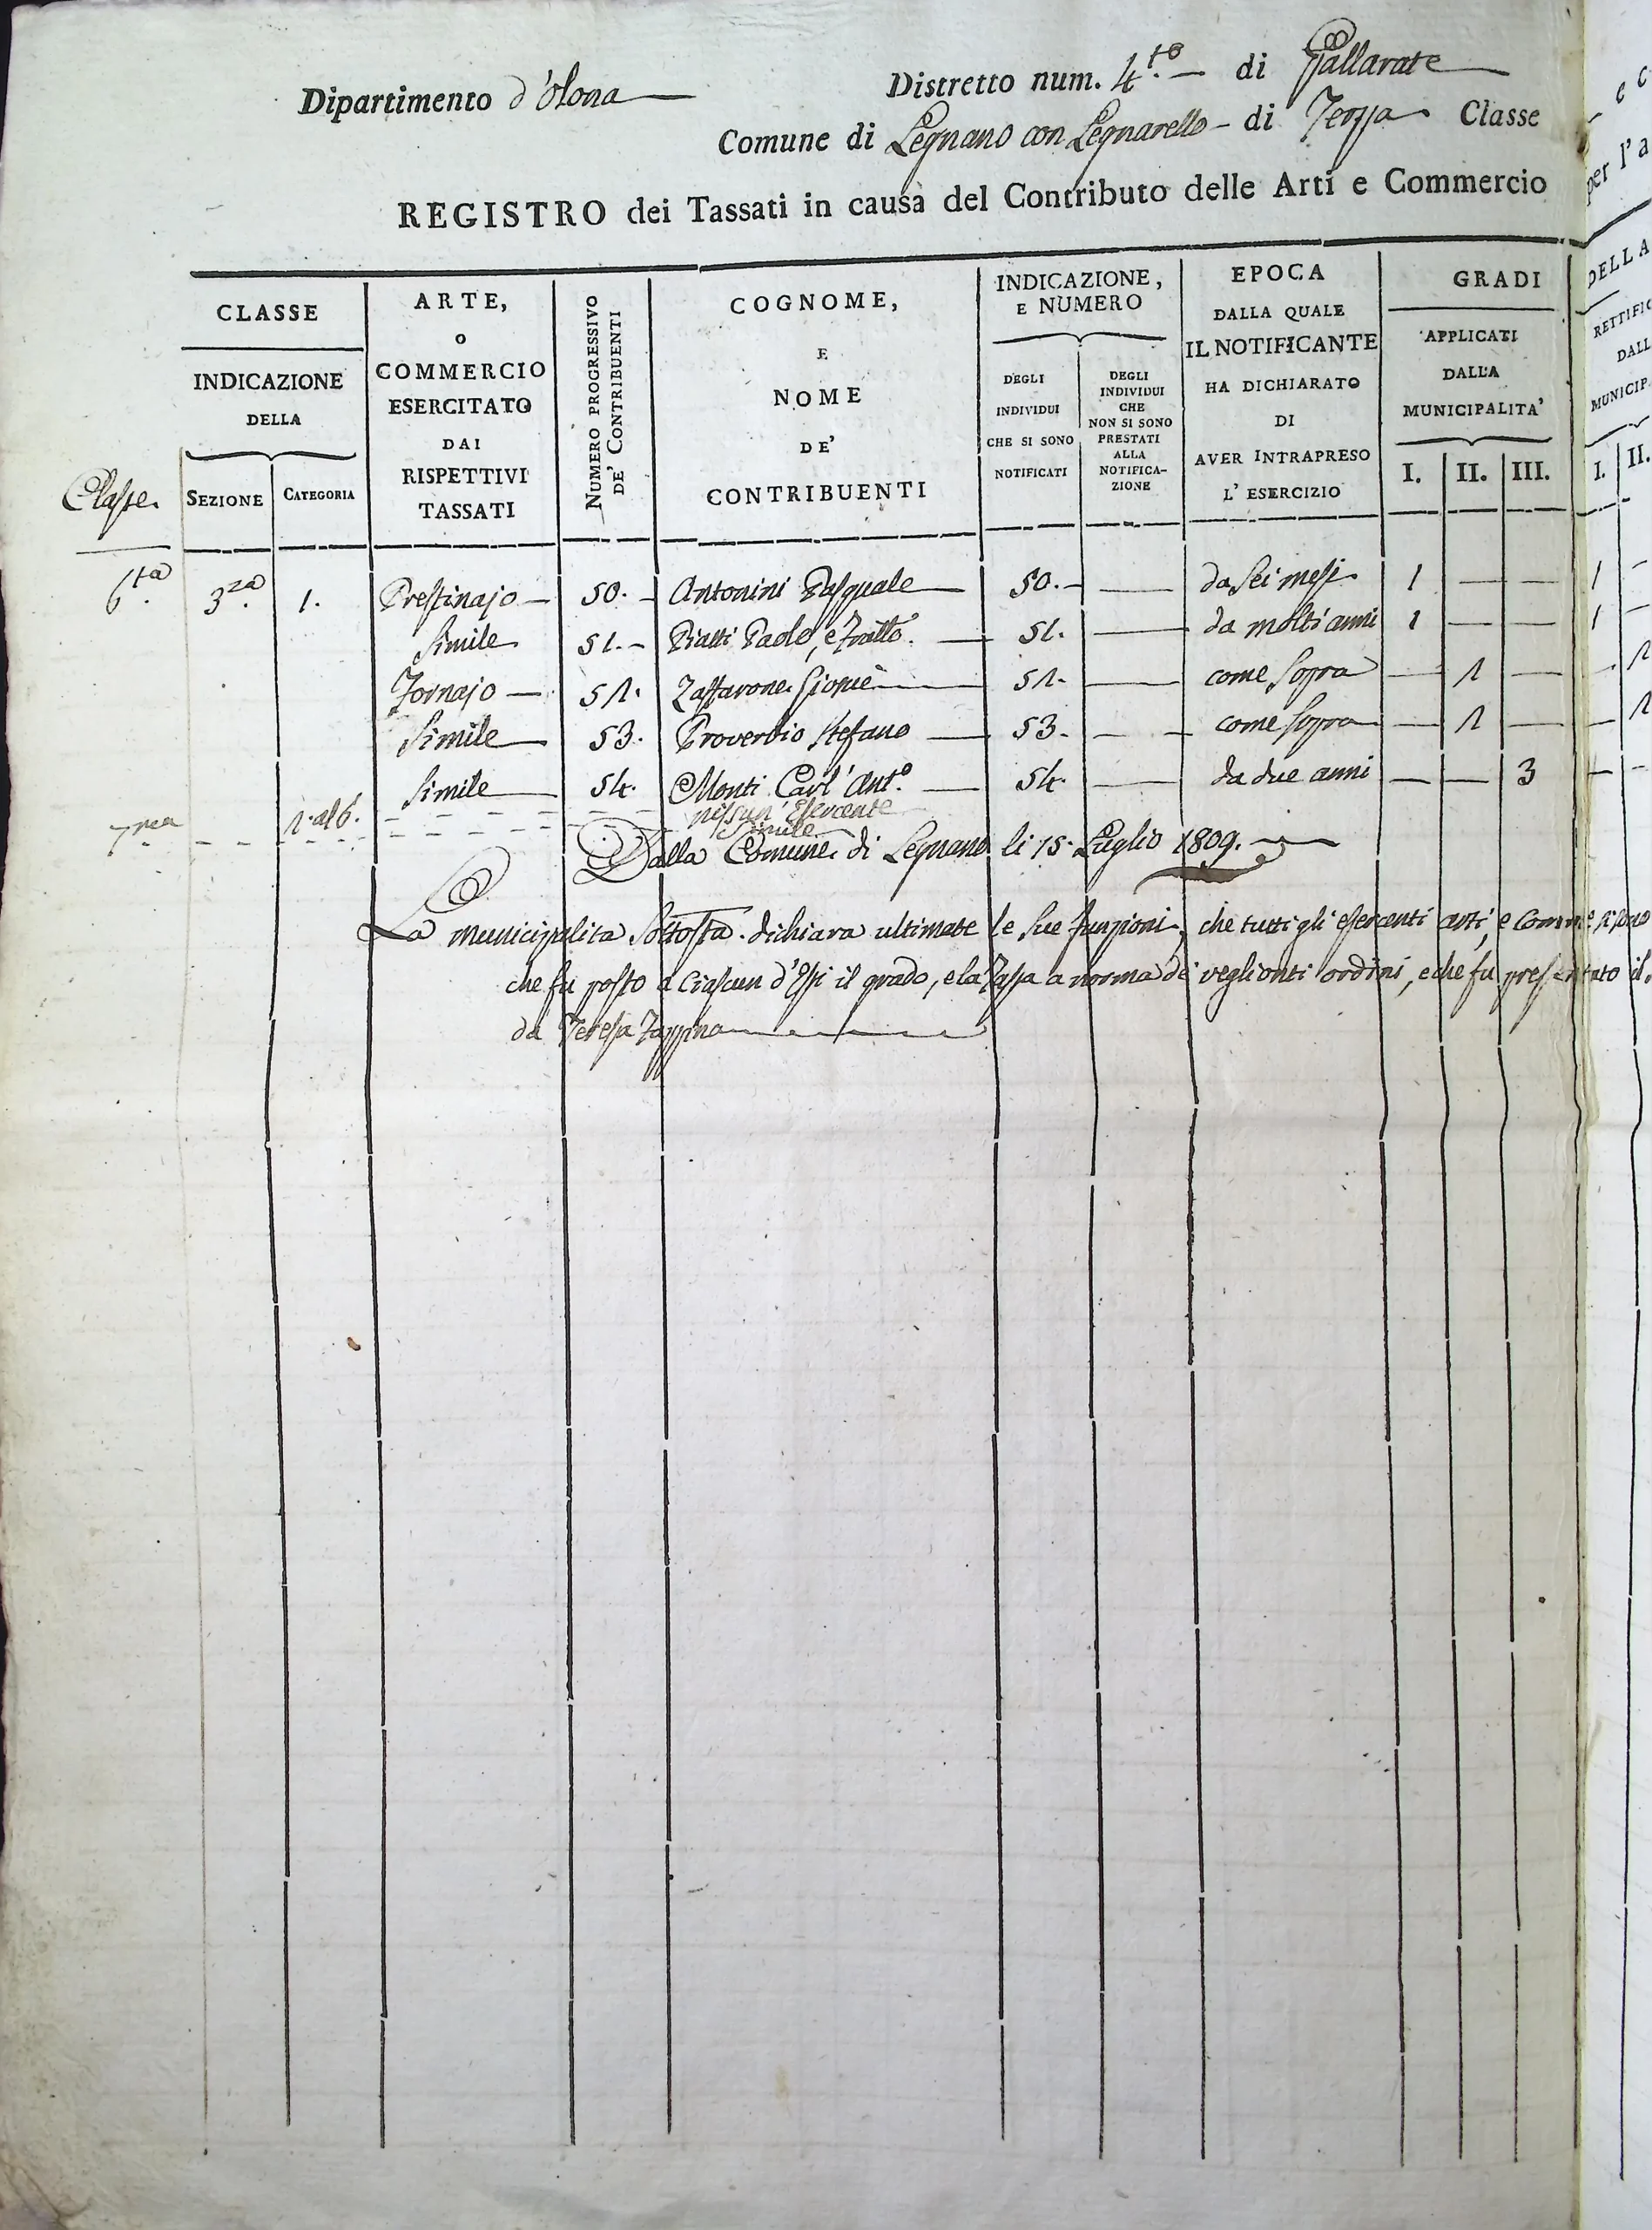 Dipartimento d'Olona Distretto num. 4.to di Gallarate
Comune di Legnano con Legnarello di Terza Classe
REGISTRO dei Tassati in causa del Contributo delle Arti e Commercio
CLASSE
INDICAZIONE
DELLA
Classe
SEZIONE
CATEGORIA
ARTE,
O
COMMERCIO
ESERCITATO
DAI
RISPETTIVI
TASSATI
NUMERO PROGRESSIVO
DE' CONTRIBUENTI
COGNOME,
E
NOME
DE'
CONTRIBUENTI
INDICAZIONE,
E NUMERO
DEGLI
INDIVIDUI
CHE SI SONO
NOTIFICATI
DEGLI
INDIVIDUI
CHE
NON SI SONO
PRESTATI
ALLA
NOTIFICA-
ZIONE
EPOCA
DALLA QUALE
IL NOTIFICANTE
HA DICHIARATO
DI
AVER INTRAPRESO
L'ESERCIZIO
GRADI
APPLICATI
DALLA
MUNICIPALITA'
I. II. III.
per l'a
DELLA
RETTIFIC
DALL
MUNICIP
I. II.
6.ta 3.za 1. Prestinajo 50. Antonini Pasquale 50. da sei mesi 1 — — 1
Simile 51. Piatti Paolo, e Fratto. 51. da molti anni 1 — — 1
Fornajo 52. Zaffarone Giosuè 52. come sopra — 2 — 2
Simile 53. Proverbio Stefano 53. come sopra — 2 — 2
Simile 54. Monti Carl'Ant.o 54. da due anni — — 3
7.ma 2. al 6. nissun' Esercente
Simile
Dalla Comune di Legnano li 15 Luglio 1809.
La municipalità Sottosta. dichiara ultimate le sue funzioni, che tutti gli esercenti arti, e Comme si sono
che fu posto a ciascun d'Essi il grado, e la Tassa a norma de' veglianti ordini, e che fu presentato il
da Teresa